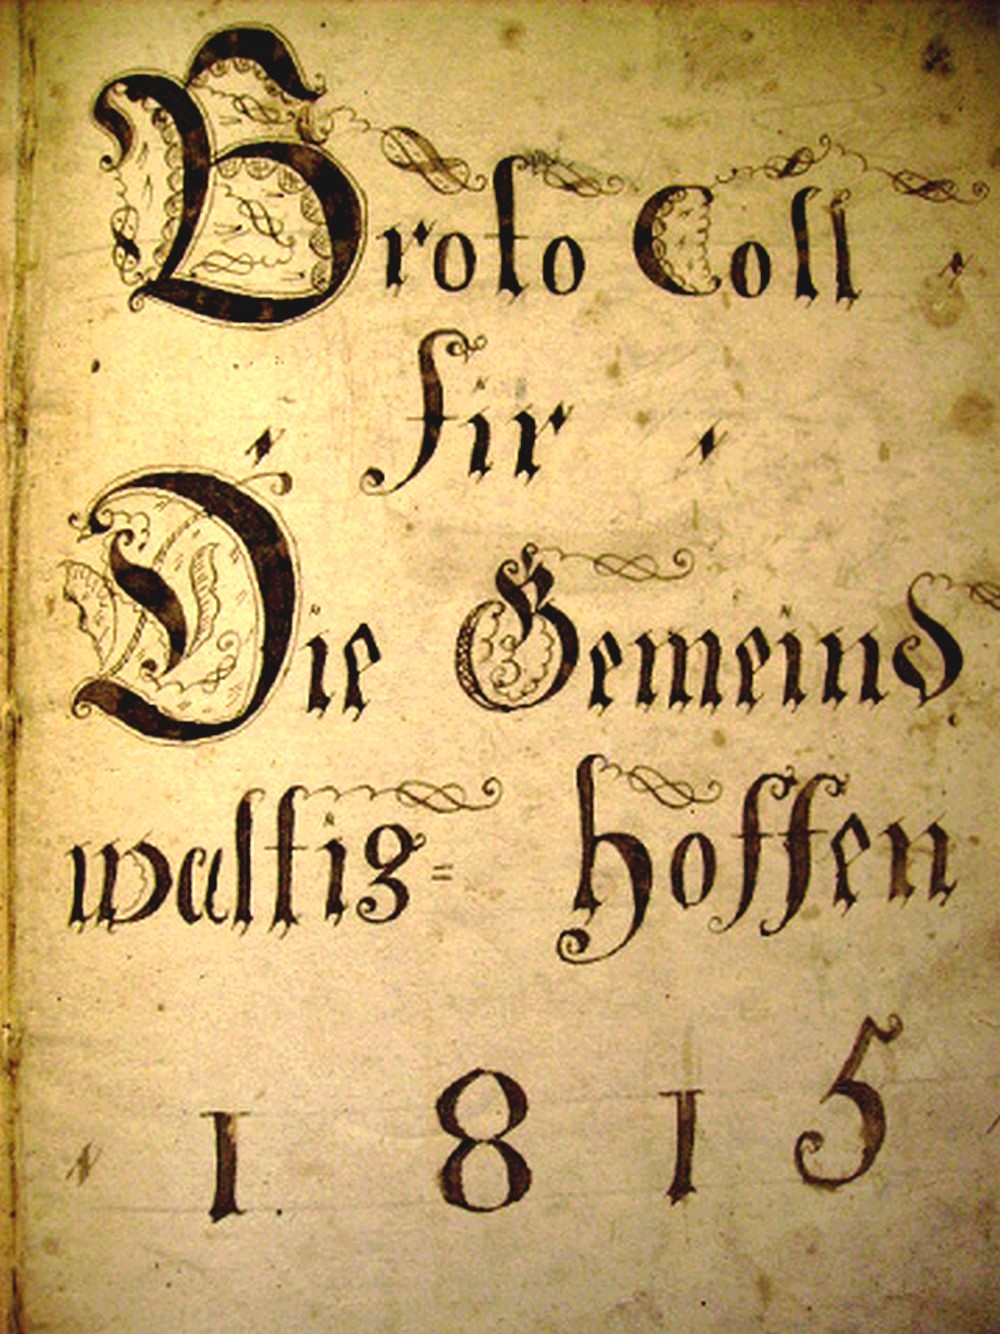 Broto Coll
fir
Die Gemeind
waltig= hoffen
1815